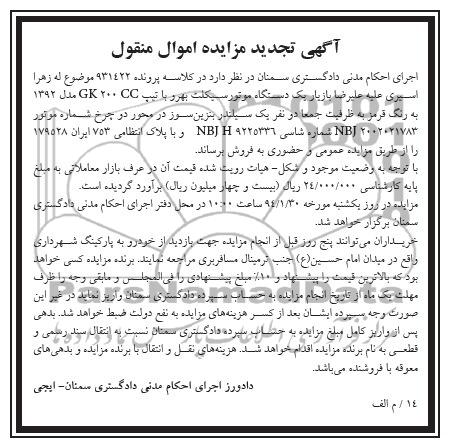 آگهی تجدید مزایده اموال منقول
اجرای احکام مدنی دادگستری سمنان در نظر دارد در کلاسه پرونده ۹۳۱۴۲۲ موضوع له زهرا
اسیری علیه علیرضا بازیار یک دستگاه موتورسیکلت بهرو با تیپ GK ۲۰۰ CC مدل ۱۳۹۲
به رنگ قرمز به ظرفیت جمعا دو نفر یک سیلندر بنزین‌سوز در محور دو چرخ شماره موتور
NBJ ۲۰۰۲۰۲۱۷۸۳ شماره شاسی NBJ H ۹۲۲۵۳۳۶ و با پلاک انتظامی ۷۵۳ ایران ۱۷۹۵۲۸
را از طریق مزایده عمومی و حضوری به فروش برساند.
با توجه به وضعیت موجود و شکل- هیات رویت شده قیمت آن در عرف بازار معاملاتی به مبلغ
پایه کارشناسی ۲۴/۰۰۰/۰۰۰ ریال (بیست و چهار میلیون ریال) برآورد گردیده است.
مزایده در روز یکشنبه مورخه ۹۴/۱/۳۰ ساعت ۱۰:۰۰ در محل دفتر اجرای احکام مدنی دادگستری
سمنان برگزار خواهد شد.
خریداران می‌توانند پنج روز قبل از انجام مزایده جهت بازدید از خودرو به پارکینگ شهرداری
واقع در میدان امام حسین(ع) جنب ترمینال مسافربری مراجعه نمایند. برنده مزایده کسی خواهد
بود که بالاترین قیمت را پیشنهاد و ۱۰٪ مبلغ پیشنهادی را فی‌المجلس و مابقی وجه را ظرف
مهلت یک ماه از تاریخ انجام مزایده به حساب سپرده دادگستری سمنان واریز نماید در غیر این
صورت وجه سپرده ایشان بعد از کسر هزینه‌های مزایده به نفع دولت ضبط خواهد شد. بدهی
پس از واریز کامل مبلغ مزایده به حساب سپرده دادگستری سمنان نسبت به انتقال سند رسمی و
قطعی به نام برنده مزایده اقدام خواهد شد. هزینه‌های نقل و انتقال با برنده مزایده و بدهی‌های
معوقه با فروشنده می‌باشد.
دادورز اجرای احکام مدنی دادگستری سمنان- ایجی
۱۴ / م الف
ParsNamadData